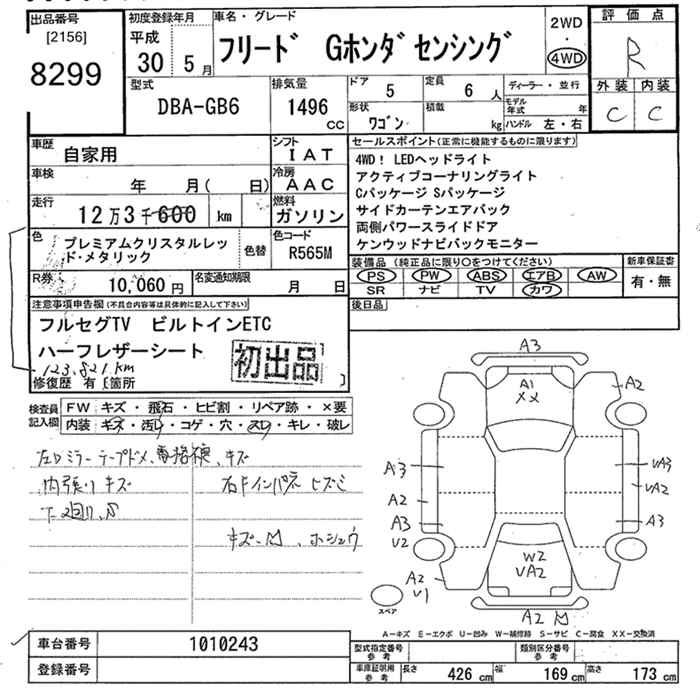 出品番号
[2156]
8299
初度登録年月
平成
30 5月
車名・グレード
フリード Gホンダセンシング
2WD
・
4WD
評価点
R
外装 内装
C C
型式
DBA-GB6
排気量
1496
CC
ドア
5
定員
6人
形状
ワゴン
積載
kg
ディーラー・並行
モデル年式 年
ハンドル 左・右
車歴
自家用
シフト
IAT
車検
年 月( 日)
冷房
AAC
走行
12万3千600 km
燃料
ガソリン
色
プレミアムクリスタルレッド・メタリック
色替
色コード
R565M
R券
10,060円
名変通知期限
月 日
セールスポイント(正常に機能するものに限ります)
4WD! LEDヘッドライト
アクティブコーナリングライト
Cパッケージ Sパッケージ
サイドカーテンエアバック
両側パワースライドドア
ケンウッドナビバックモニター
装備品(純正品に限り○をつけてください)
PS PW ABS エアB AW
SR ナビ TV カワ
新車保証書
有・無
後日品
注意事項申告欄(不具合内容等は具体的に記入して下さい)
フルセグTV ビルトインETC
ハーフレザーシート
初出品
123,821km
修復歴 有[箇所 ]
検査員記入欄
FW キズ・飛石・ヒビ割・リペア跡・×要
内装 キズ・汚れ・コゲ・穴・スレ・キレ・破レ
左ドミラー テープドメ、電格不良、キズ
内張りキズ 右Fインパネ ヒズミ
下廻り、S
キズ、凹、ホシュウ
A3
A1
XX
A2
A3
A2
A3
U2
A2
U1
UA3
UA2
A3
W2
UA2
A2 凹
スペア
A-キズ E-エクボ U-凹み W-補修跡 S-サビ C-腐食 XX-交換済
車台番号
1010243
登録番号
型式指定番号
参考
類別区分番号
参考
車庫証明用
参考
長さ 426 cm 幅 169 cm 高さ 173 cm